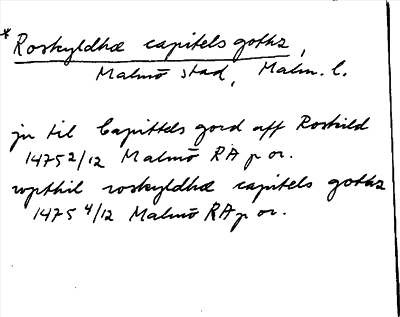 *Roskyldhæ capitels gothz,
Malmö stad, Malm. l.
jn til Capittels gord aff Roskild
1475 2/12 Malmö RA p or.
wpthil roskyldhæ capitels gothz
1475 4/12 Malmö RA p or.